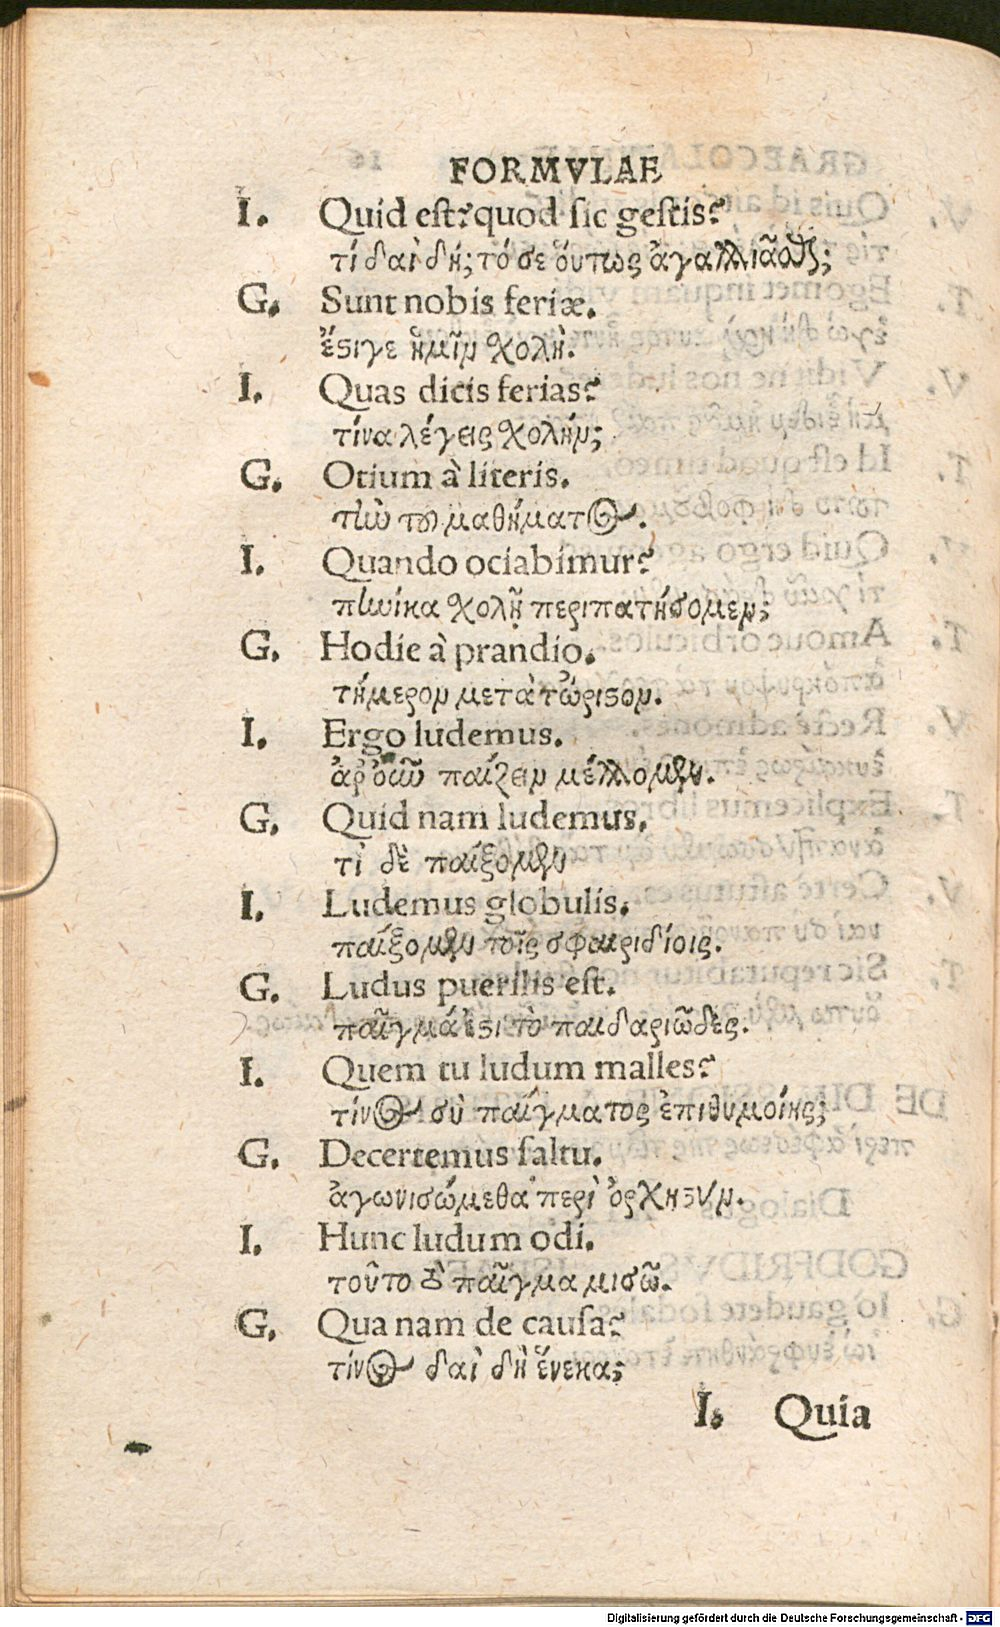 FORMVLAE
I. Quid est? quod sic gestis?
τί δαὶ δή; τό σε ὅυτως ἀγαλλιᾶσθαι;
G. Sunt nobis feriæ.
ἔστιγε ἡμῖν χολὴ.
I. Quas dicis ferias?
τίνα λέγεις χολήν;
G. Otium à literis.
τὴν τοῦ μαθήματος.
I. Quando ociabimur?
πηνίκα χολῇ περιπατήσομεν;
G. Hodie à prandio.
τήμερον μετὰ τὤριστον.
I. Ergo ludemus.
ἆρ' οὖν παίζειν μέλλομεν.
G. Quid nam ludemus.
τί δὲ παίξομεν
I. Ludemus globulis.
παίξομεν τοῖς σφαιριδίοις.
G. Ludus puerilis est.
παῖγμά ἐστι τὸ παιδαριῶδες.
I. Quem tu ludum malles?
τίνος σὺ παίγματος ἐπιθυμοίης;
G. Decertemus saltu.
ἀγωνισώμεθα περὶ ὀρχηστὺν.
I. Hunc ludum odi.
τοῦτο τὸ παῖγμα μισῶ.
G. Qua nam de causa?
τίνος δαὶ δὴ ἕνεκα;
I. Quia
Digitalisierung gefördert durch die Deutsche Forschungsgemeinschaft - DFG